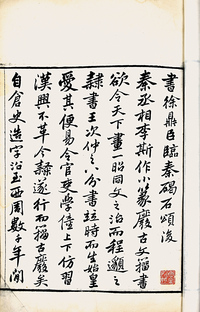 書徐鼎臣臨秦碣石頌後
秦丞相李斯作小篆廢古文籀書
欲令天下畫一昭同文之治而程邈之
隸書王次仲之八分書竝時而生始皇
愛其便易令官吏學僮上下仿習
漢興不革今隸遂行而籀古廢矣
自倉史造字沿至西周數千年閒